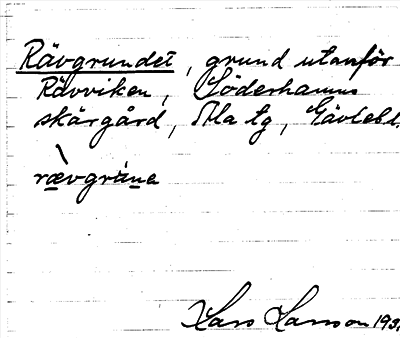 Rävgrundet, grund utanför
Rävviken, Söderhamns
skärgård, Ala tg, Gävlebl.
rævgrùna
Lars Larsson 193